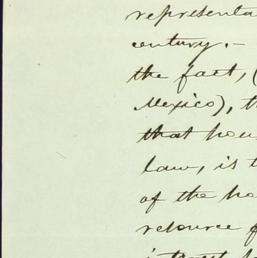 representa
century. –
the fact, (
Mexico), th
that hou
law, is t
of the ho
resource f
interest